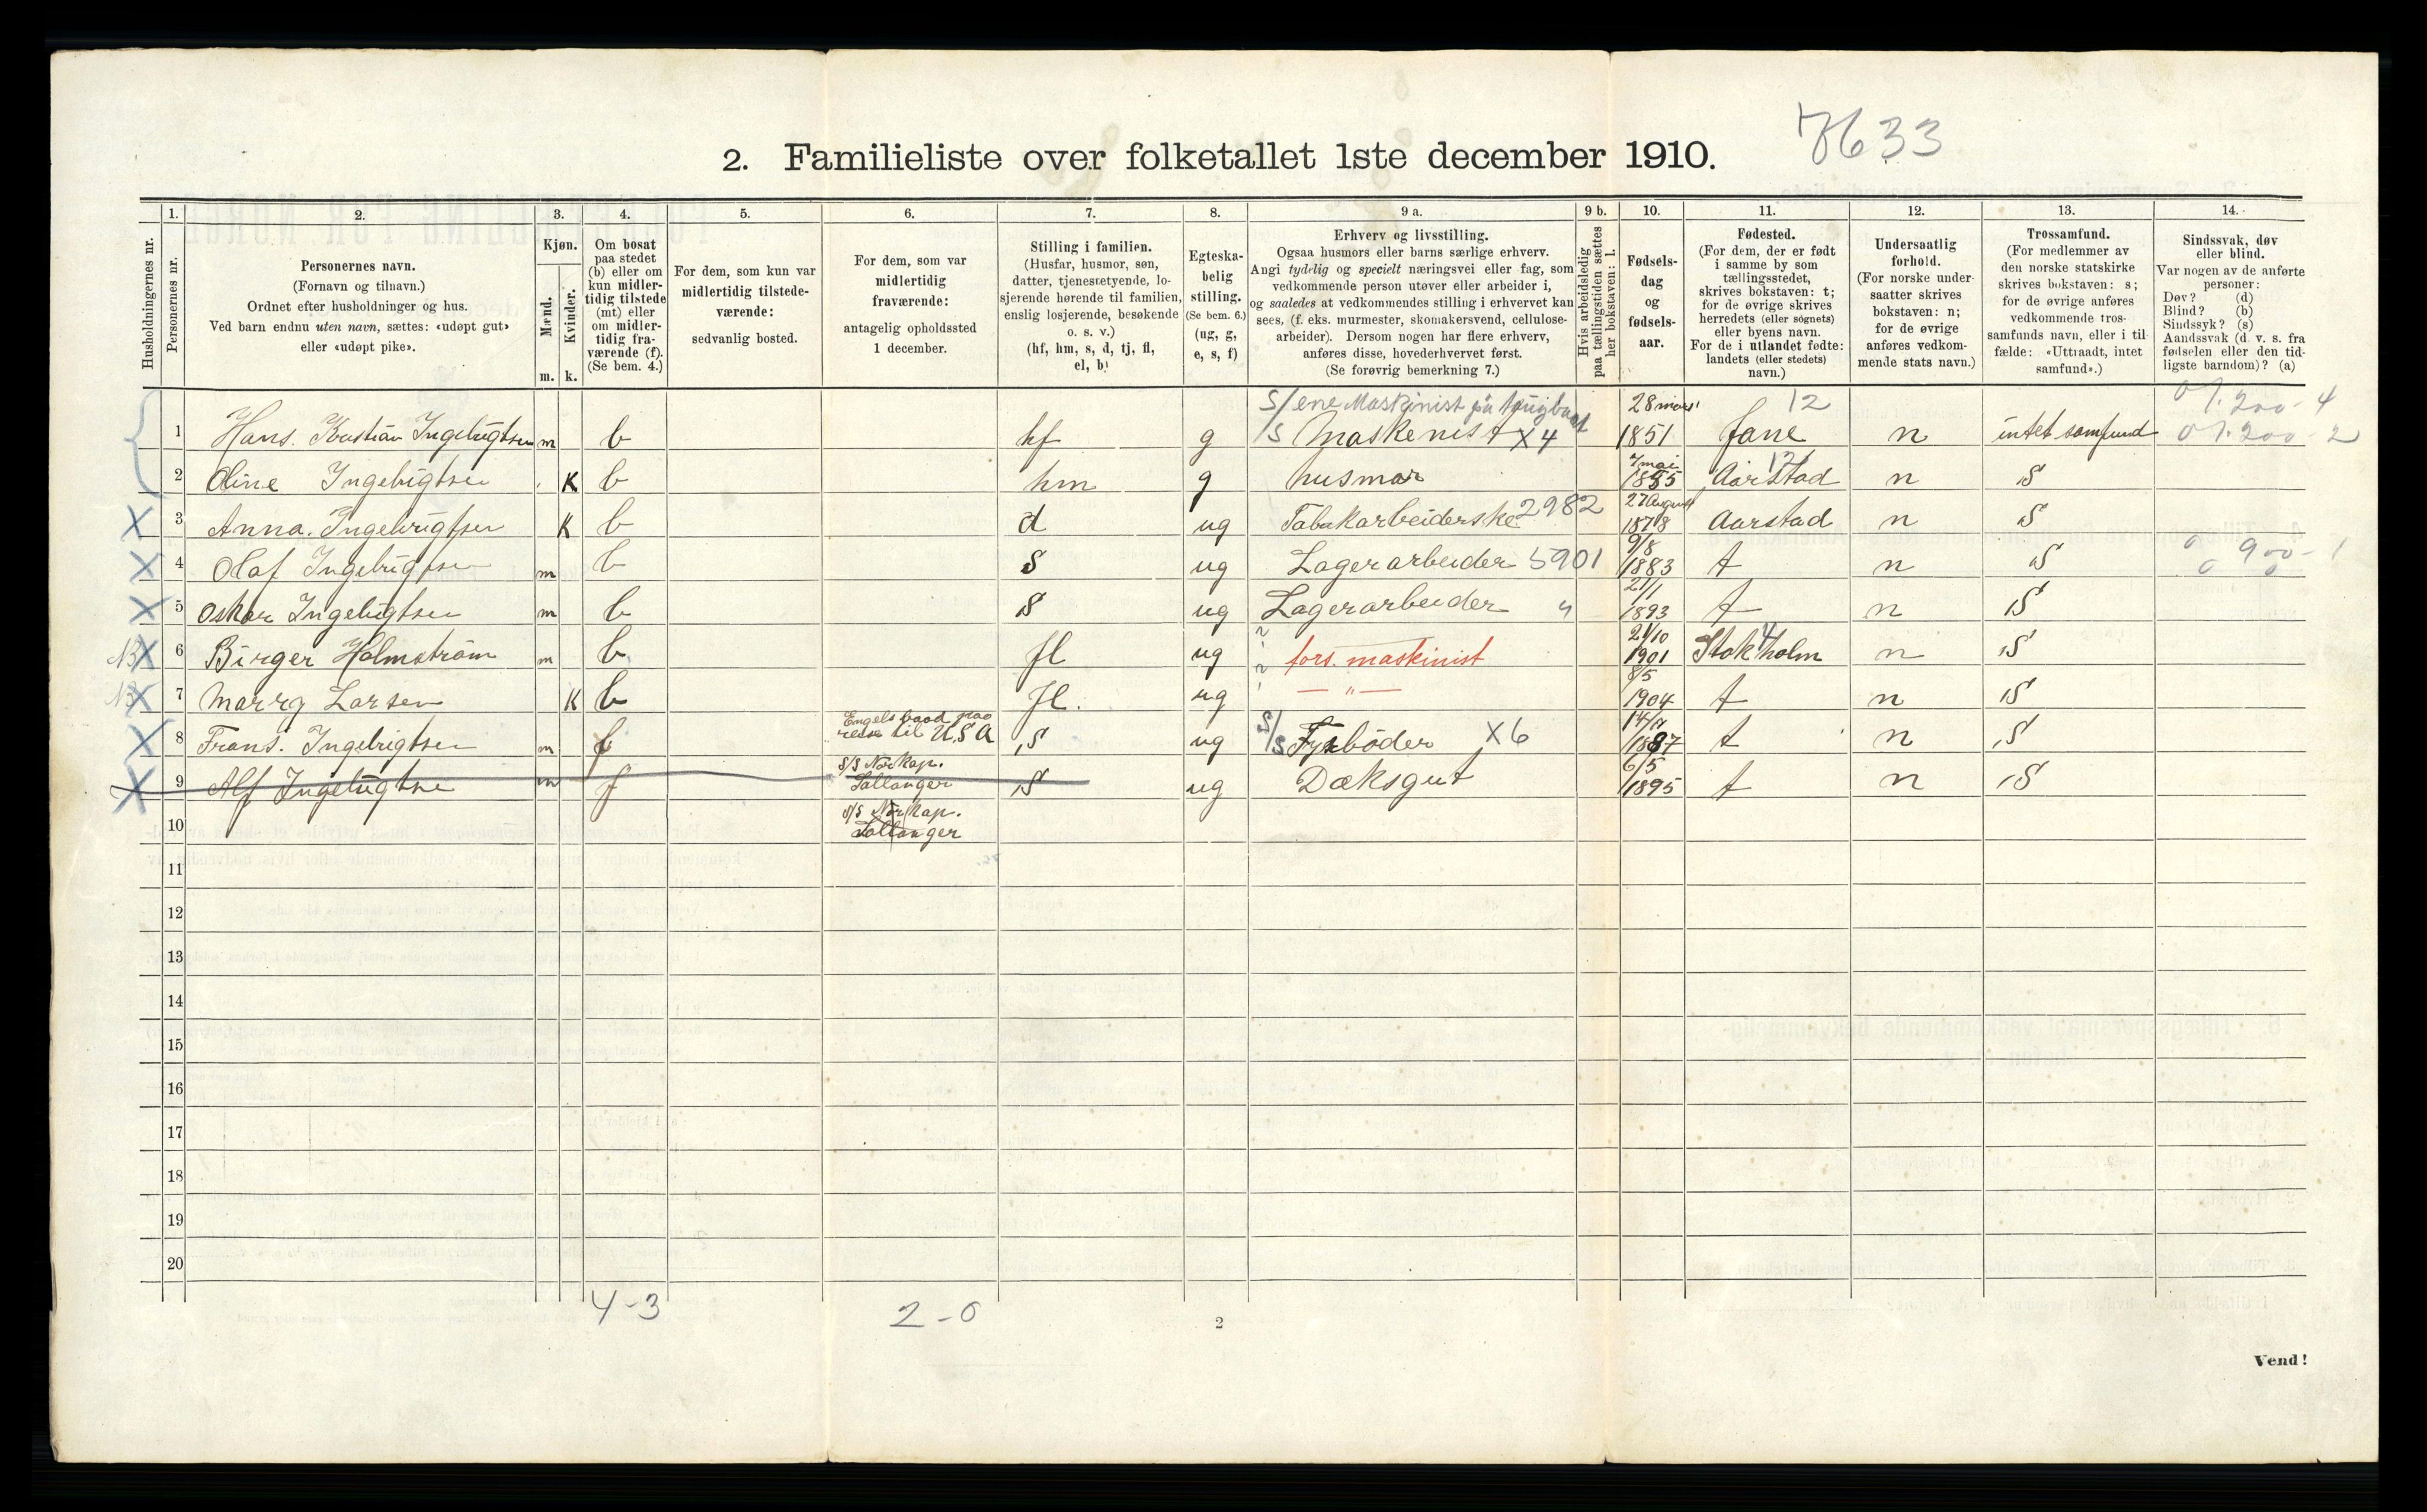 2. Familieliste over folketallet 1ste december 1910.
7633
Husholdningernes nr.
1.
Personernes nr.
2.
Personernes navn.
(Fornavn og tilnavn.)
Ordnet efter husholdninger og hus.
Ved barn endnu uten navn, sættes: «udøpt gut»
eller «udøpt pike».
3.
Kjøn.
Mænd.
Kvinder.
m. k.
4.
Om bosat
paa stedet
(b) eller om
kun midler-
tidig tilstede
(mt) eller
om midler-
tidig fra-
værende (f).
(Se bem. 4.)
5.
For dem, som kun var
midlertidig tilstede-
værende:
sedvanlig bosted.
6.
For dem, som var
midlertidig
fraværende:
antagelig opholdssted
1 december.
7.
Stilling i familien.
(Husfar, husmor, søn,
datter, tjenestetyende, lo-
sjerende hørende til familien,
enslig losjerende, besøkende
o. s. v.)
(hf, hm, s, d, tj, fl,
el, b)
8.
Egteska-
belig
stilling.
(Se bem. 6.)
(ug, g,
e, s, f)
9 a.
Erhverv og livsstilling.
Ogsaa husmors eller barns særlige erhverv.
Angi tydelig og specielt næringsvei eller fag, som
vedkommende person utøver eller arbeider i,
og saaledes at vedkommendes stilling i erhvervet kan
sees, (f. eks. murmester, skomakersvend, cellulose-
arbeider). Dersom nogen har flere erhverv,
anføres disse, hovederhvervet først.
(Se forøvrig bemerkning 7.)
9 b.
Hvis arbeidsledig
paa tællingstiden sættes
her bokstaven: l.
10.
Fødsels-
dag
og
fødsels-
aar.
11.
Fødested.
(For dem, der er født
i samme by som
tællingsstedet,
skrives bokstaven: t;
for de øvrige skrives
herredets (eller sognets)
eller byens navn.
For de i utlandet fødte:
landets (eller stedets)
navn.)
12.
Undersaatlig
forhold.
(For norske under-
saatter skrives
bokstaven: n;
for de øvrige
anføres vedkom-
mende stats navn.)
13.
Trossamfund.
(For medlemmer av
den norske statskirke
skrives bokstaven: s;
for de øvrige anføres
vedkommende tros-
samfunds navn, eller i til-
fælde: «Uttraadt, intet
samfund».)
14.
Sindssvak, døv
eller blind.
Var nogen av de anførte
personer:
Døv? (d)
Blind? (b)
Sindssyk? (s)
Aandssvak (d. v. s. fra
fødselen eller den tid-
ligste barndom)? (a)
S/ene Maskinist på 28 mars 12 200-4
1 Hans. Ingebrigtsen m b hf g S/S Maskenist X4 1851 n intet samfund 200-2
7 mai 12
2 Oline Ingebrigtsen K b hm g husmor 1855 Aarstad n S
27 August
3 Anna. Ingebrigtsen K b d ug Tabakarbeiderske 2982 1878 Aarstad n S
9/8
4 Olaf Ingebrigtsen m b S ug Lagerarbeider 5901 1883 t n S 900-1
21/1
5 Oskar Ingebrigtsen m b S ug Lagerarbeider " 1893 t n S
21/10 4
6 Birger Holmström m b fl ug fors. maskinist 1901 Stokholm n S
8/5
7 Marry Larsen K b fl. ug — " — 1904 t n S
Engelsk baad paa 14/7
8 Frans. Ingebrigtsen m f reise til U.S.A S ug S/S Fyrbøder X6 1887 t n S
S/S Norkap. 6/5
9 Alf Ingebrigtsen m f Salanger S ug Dæksgut 1895 t n S
10 S/S Norkap.
11
12
13
14
15
16
17
18
19
20
4-3
2-0
2
Vend!